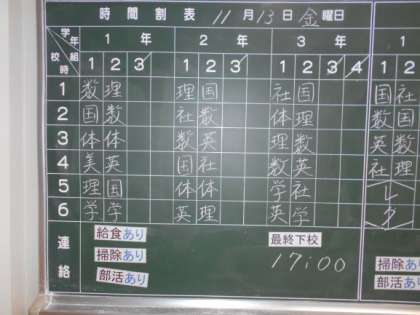 時間割表 11月13日金曜日
学年 1年 2年 3年 1
校時 組 1 2 3 1 2 3 1 2 3 4 1 2
1 数 理 理 国 社 国 国 社
2 国 数 社 数 体 理 数 国
3 体 体 数 英 理 数 英 数
4 美 英 国 社 数 英 社 理
5 理 国 体 体 学 社
6 学 学 英 理 英 学
連絡 給食あり 最終下校
掃除あり 17:00 掃除あ
部活あり 部活あ